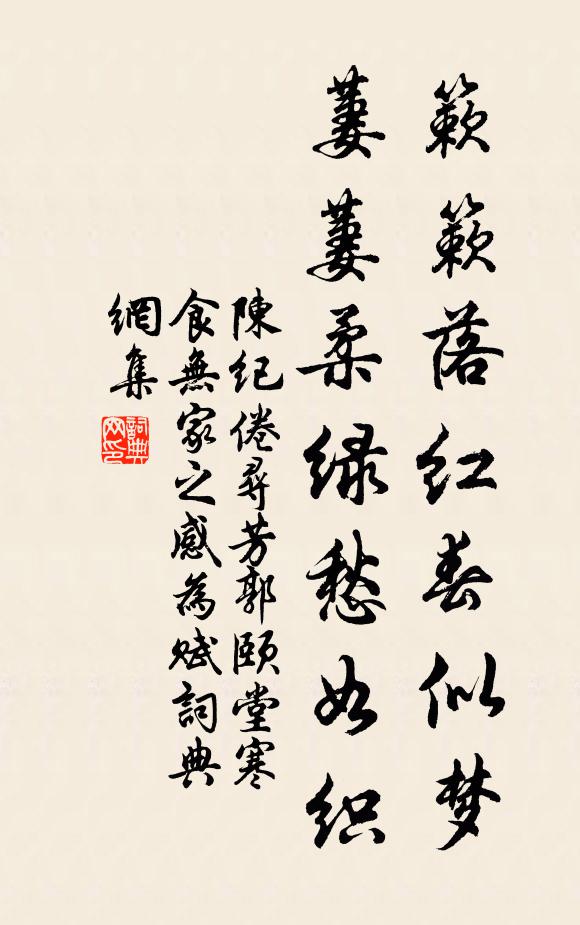 簌簌落红春似梦
萋萋柔绿愁如织
陳紀倦尋芳郭頤堂寒
食無家之感為賦詞典
網集
詞典
网印